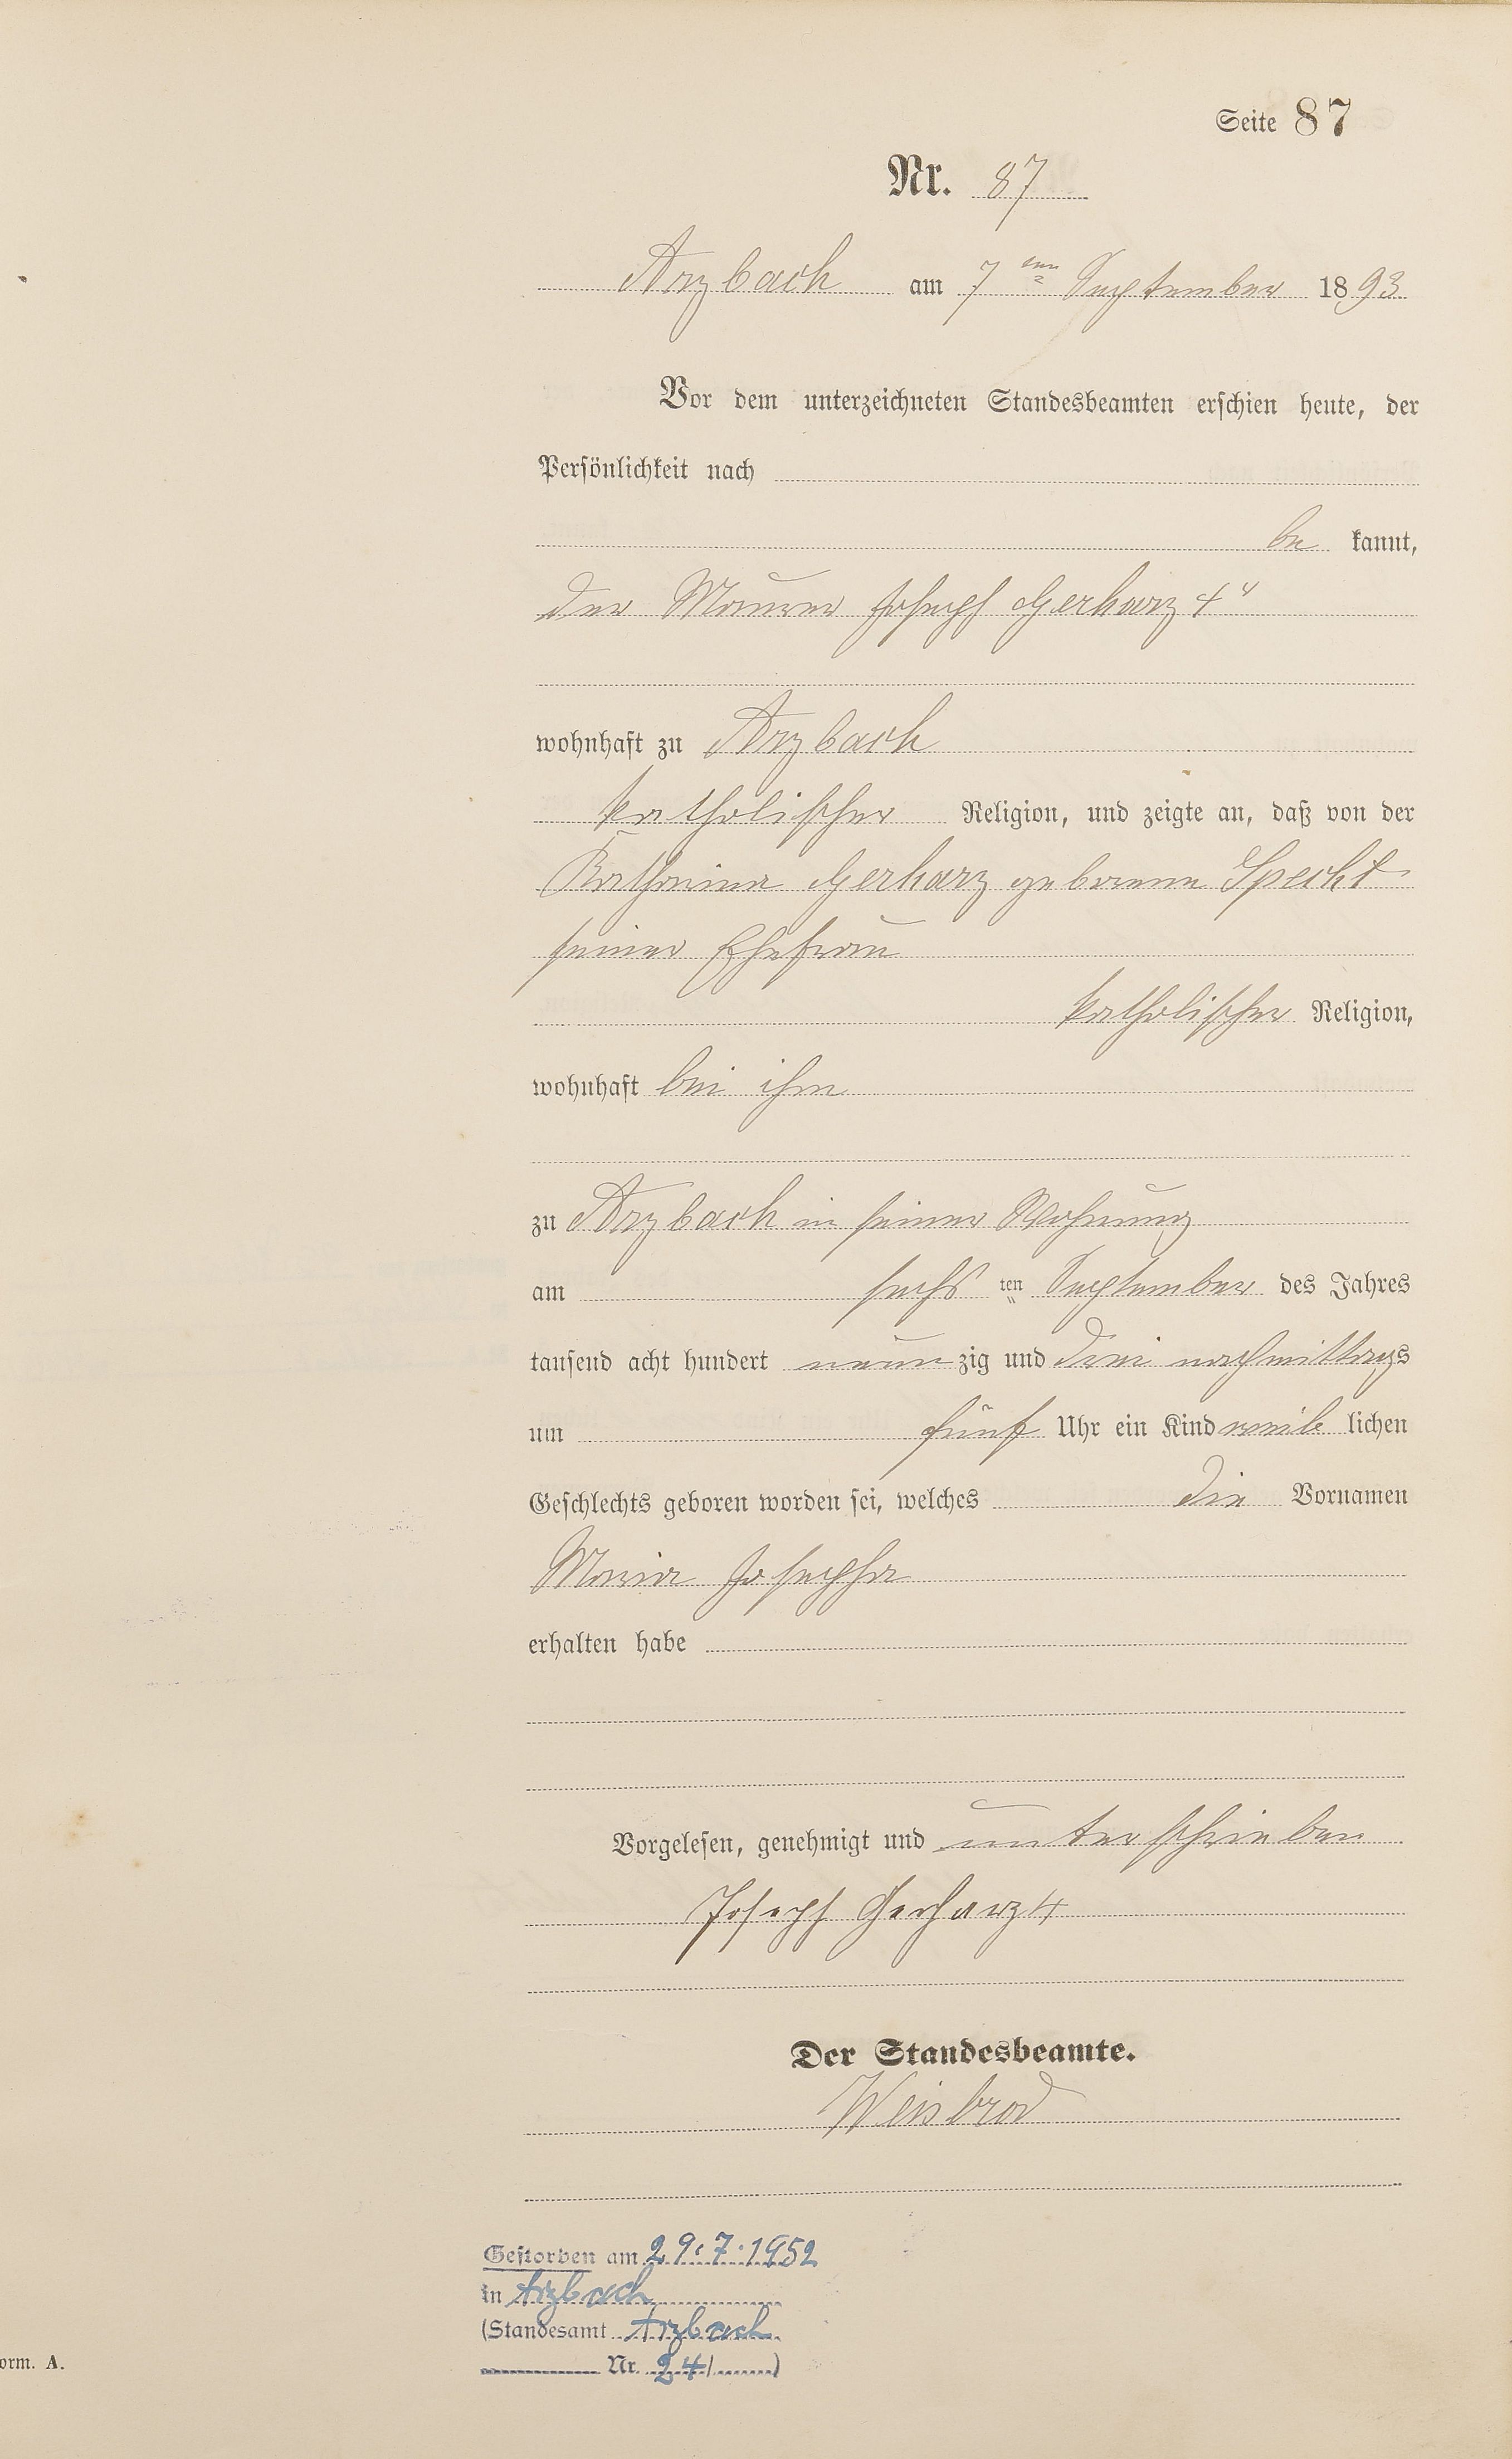 Seite 87
Nr. 87
Arzbach am 7ten September 1893
Vor dem unterzeichneten Standesbeamten erschien heute, der
Persönlichkeit nach
be kannt,
der Maurer Joseph Gerharz 4"
wohnhaft zu Arzbach
katholischer Religion, und zeigte an, daß von der
Katharina Gerharz geborene Specht
seiner Ehefrau
katholischer Religion,
wohnhaft bei ihm
zu Arzbach in seiner Wohnung
am sechs ten September des Jahres
tausend acht hundert neun zig und drei nachmittags
um fünf Uhr ein Kind weib lichen
Geschlechts geboren worden sei, welches die Vornamen
Maria Josepha
erhalten habe
Vorgelesen, genehmigt und unterschrieben
Joseph Gerharz 4
Der Standesbeamte.
Weisbrod
Gestorben am 29.7.1952
in Arzbach
(Standesamt Arzbach
Nr. 24/ )
orm. A.